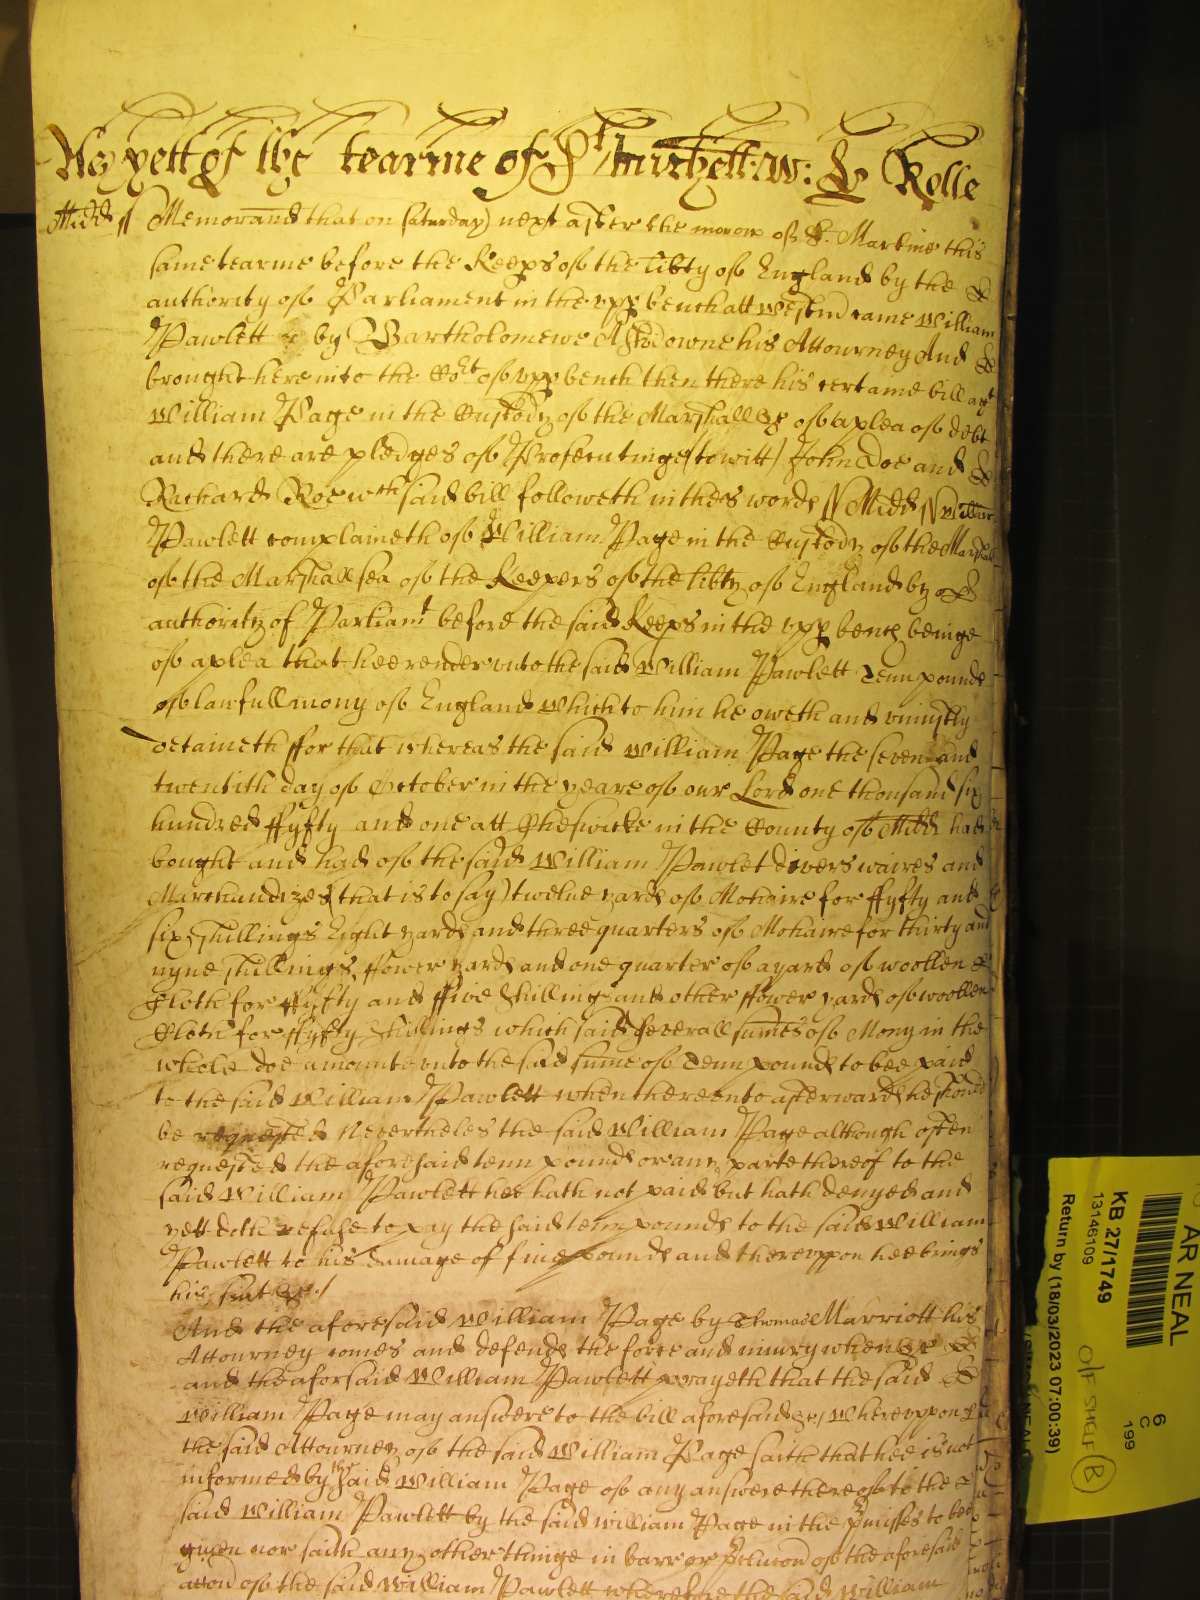 Yett of the tearme of St Michaell: & Rolle
Midds ss Memorand that on Saturday next after the morow of St. Martine this
same tearme before the Keeps of the libty of England by the
authority of Parliament in the upp bench att Westm came William
Pawlett by Bartholomewe Ashdowne his Attourney And
brought here into the Cort of upp bench then there his certaine bill agt
William Page in the Custody of the Marshall &c of a plea of debt
and there are pledges of Prosecutinge (to witt) John Doe and
Richard Roe wch said bill followeth in thes words ss Midds ss William
Pawlett complaineth of William Page in the Custody of the Marshall
of the Marshallsea of the Keepers of the libty of England by
authority of Parliamt before the said Keeps in the upp bench beinge
of a plea that hee render unto the said William Pawlett Tenn pounds
of lawfull mony of England which to him he oweth and uniustly
detaineth ffor that whereas the said William Page the seven and
twentith day of October in the yeare of our Lord one thousand six
hundred ffyfty and one att Cheswicke in the County of Midds had
bought and had of the said William Pawlet divers waires and
Marchandizes (that is to say) twelve yards of Mohaire for ffyfty and
six shillings Eight yards and three quarters of Mohaire for thirty and
nyne shillings, ffower yards and one quarter of a yard of woollen
Cloth for ffyfty and ffive shillings and other ffower yards of woollen
Cloth for ffyfty shillings which said severall sumes of Mony in the
whole doe amounte unto the said sume of Tenn pounds to bee paid
to the said William Pawlett when thereunto afterwards he should
be requested Neverthelés the said William Page although often
requested the aforesaid tenn pounds or any parte thereof to the
said William Pawlett hee hath not paid but hath denyed and
yett doth refuse to pay the said tenn pounds to the said William
Pawlett to his damage of five pounds and thereuppon hee brings
his suit &c./
And the aforesaid William Page by Thomas Marriott his
Attourney comes and defends the force and iniury when &c
and the aforsaid William Pawlett prayeth that the said
William Page may answere to the bill aforesaid &c, Whereuppon
the said Attourney of the said William Page saith that hee is not
informed by the said William Page of any answere thereof to the
said William Pawlett by the said William Page in the pmisses to bee
given nor saith any other thinge in barr or pclucon of the aforesaid
accon of the said William Pawlett wherefore the said William
AR NEAL
KB 27/1749
13146109
Return by (18/03/2023 07:00:39)
6
C
199
O/F SHELF B